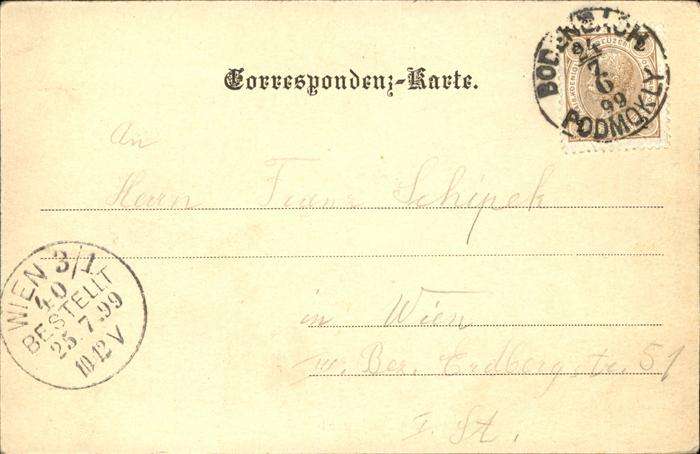 Correspondenz-Karte.
BODENBACH
24
7
6
99
PODMOKLY
An
Herrn Franz Schipek
WIEN 3/1
40
BESTELLT
25.7.99
10-12 V
in Wien
Bez. Erdbergstr. 51
I. St.